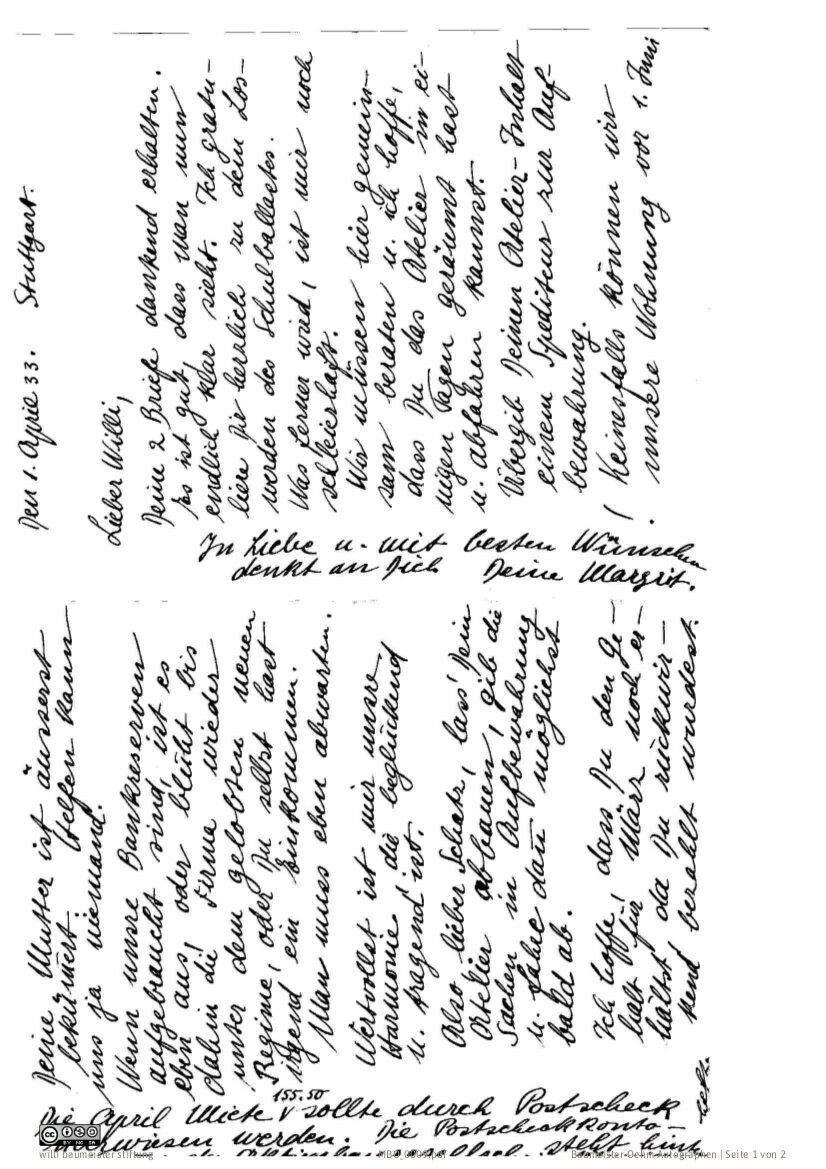 Den 1. April 33. Stuttgart.
Lieber Willi,
Deine 2 Briefe dankend erhalten.
Es ist gut, dass man nun
endlich klar sieht. Ich gratu-
liere Dir herzlich zu dem Los-
werden des Schulballastes.
Was ferner wird, ist mir noch
schleierhaft.
Wir müssen hier gemein-
sam beraten u. ich hoffe,
dass Du das Atelier in ei-
nigen Tagen geräumt hast
u. abfahren kannst.
Übergib Deinen Atelier-Inhalt
einem Spediteur zur Auf-
bewahrung.
! Keinesfalls können wir
unsere Wohnung vor 1. Juni
In Liebe u. mit besten Wünschen
denkt an Dich Deine Margrit.
Deine Mutter ist äusserst
bekümert. Helfen kann
uns ja niemand.
Wenn unsre Bankreserven
aufgebraucht sind, ist es
eben aus, oder blüht bis
dahin die Firma wieder
unter dem gelobten neuen
Regime, oder Du selbst hast
irgend ein Einkommen.
Man muss eben abwarten.
Wertvollst ist mir unsre
Harmonie, die beglückend
u. tragend ist.
Also lieber Schatz, lass' Dein
Atelier abbauen, gib die
Sachen in Aufbewahrung
u. fahre dan möglichst
bald ab.
Ich hoffe, dass Du den Ge-
halt für März noch er-
hältst, da Du rückwir-
kend bezahlt wurdest.
155.50
Die April Miete v sollte durch Postscheck
überwiesen werden. Die Postscheckkonto-
steht
willi baumeister stiftung
Baumeister-Oehm-Autographen | Seite 1 von 2
CC BY NC SA